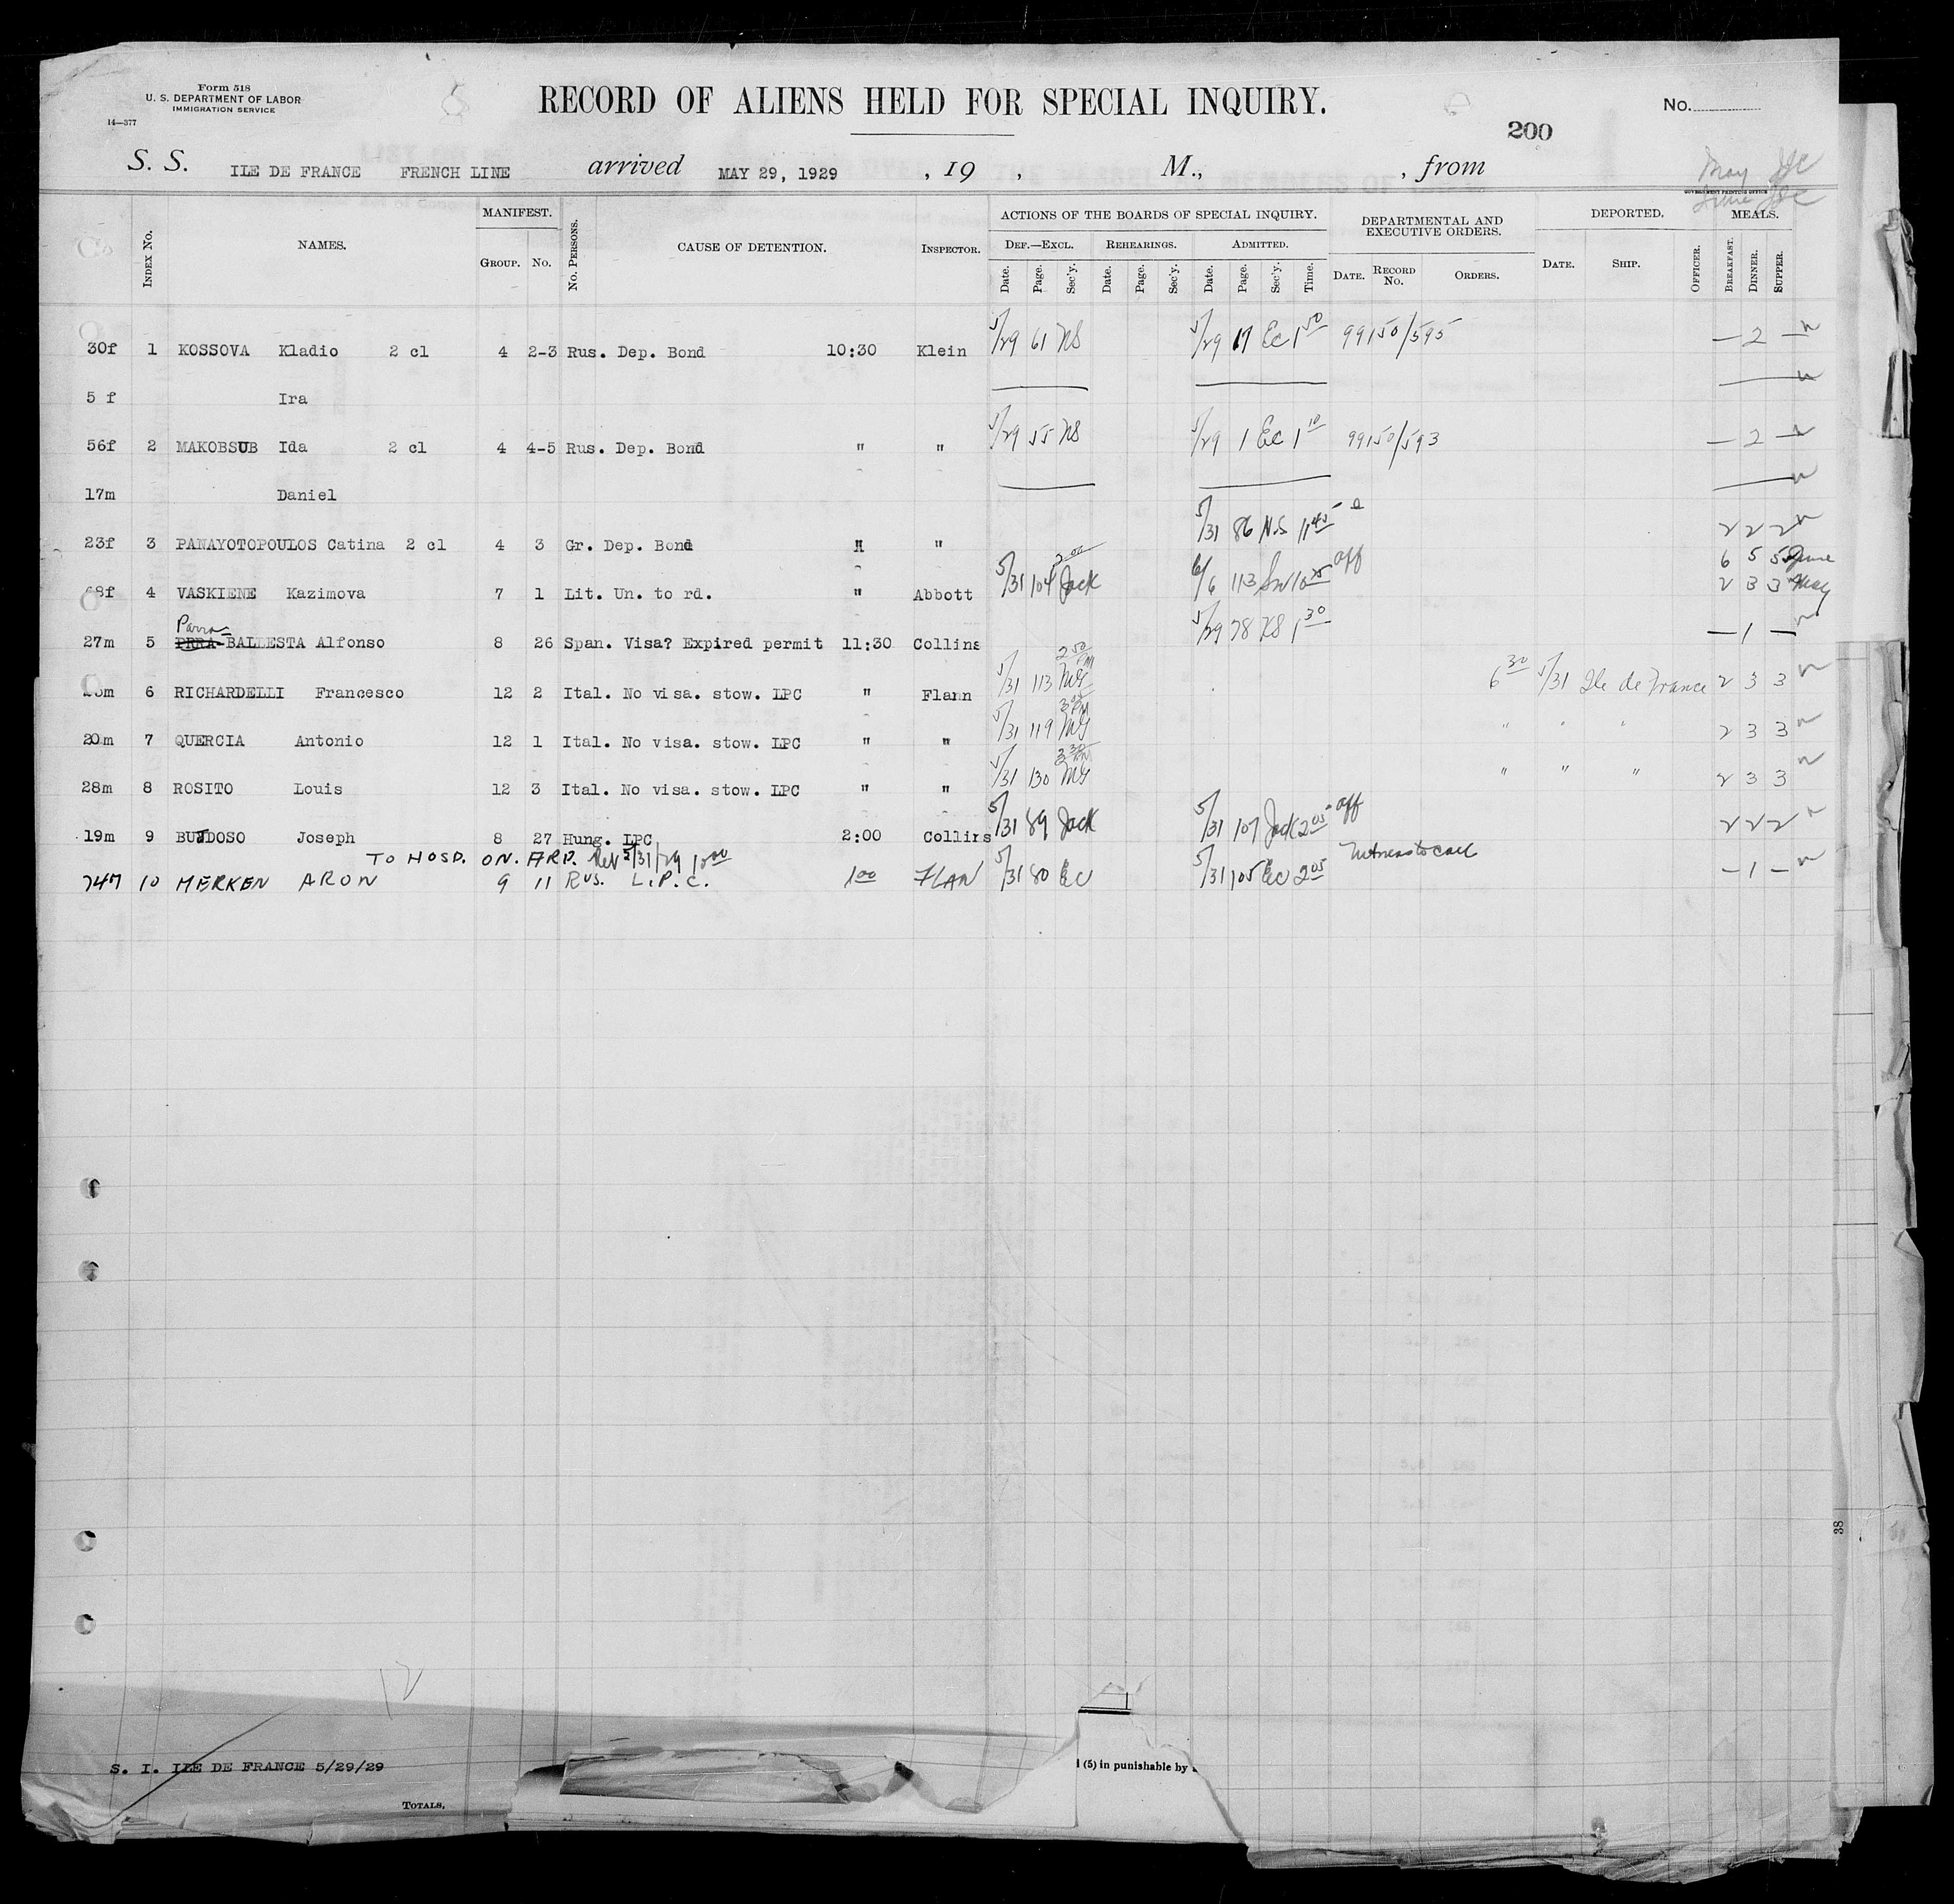 Form 518
U. S. DEPARTMENT OF LABOR
IMMIGRATION SERVICE
14—377
RECORD OF ALIENS HELD FOR SPECIAL INQUIRY.
No.
200
S. S. ILE DE FRANCE FRENCH LINE arrived MAY 29, 1929 , 19 , M., , from
May
June
GOVERNMENT PRINTING OFFICE
INDEX No. NAMES. MANIFEST. GROUP. No. No. PERSONS. CAUSE OF DETENTION. INSPECTOR. ACTIONS OF THE BOARDS OF SPECIAL INQUIRY. DEPARTMENTAL AND EXECUTIVE ORDERS. DEPORTED. MEALS.
DEF.—EXCL. REHEARINGS. ADMITTED.
Date. Page. Sec'y. Date. Page. Sec'y. Date. Page. Sec'y. Time. DATE. RECORD No. ORDERS. DATE. SHIP. OFFICER. BREAKFAST. DINNER. SUPPER.
30f 1 KOSSOVA Kladio 2 cl 4 2-3 Rus. Dep. Bond 10:30 Klein 5/29 61 NS 5/29 17 Ec 1 50 99150/595 — 2 —
5 f Ira
56f 2 MAKOBSUB Ida 2 cl 4 4-5 Rus. Dep. Bond " " 5/29 55 NS 5/29 1 Ec 1 10 99150/593 — 2 —
17m Daniel
23f 3 PANAYOTOPOULOS Catina 2 cl 4 3 Gr. Dep. Bond " " 5/31 86 N.S 11 45 2 2 2
6 5 5 June
68f 4 VASKIENE Kazimova 7 1 Lit. Un. to rd. " Abbott 5/31 104 Jack 2 00 6/6 113 10 25 off 2 3 3 May
Parra
27m 5 PRRA-BALLESTA Alfonso 8 26 Span. Visa? Expired permit 11:30 Collins 5/29 78 NS 1 30 — 1 —
6 RICHARDELLI Francesco 12 2 Ital. No visa. stow. LPC " Flann 5/31 113 MG 2 50 PM 6 30 5/31 Ile de France 2 3 3
20m 7 QUERCIA Antonio 12 1 Ital. No visa. stow. LPC " " 5/31 119 MG 3 05 PM " " " 2 3 3
28m 8 ROSITO Louis 12 3 Ital. No visa. stow. LPC " " 5/31 130 MG 3 30 PM " " " 2 3 3
19m 9 BUJDOSO Joseph 8 27 Hung. LPC 2:00 Collins 5/31 89 Jack 5/31 107 Jack 2 05 off 2 2 2
TO HOSP. ON. ARR. Rel 5/31/29 10 00 Witness to call
74m 10 MERKEN ARON 9 11 RUS. L.P.C. 1 00 FLAN 5/31 80 Ec 5/31 105 Ec 2 05 — 1 —
12
38
S. I. ILE DE FRANCE 5/29/29
(5) in punishable by
TOTALS,